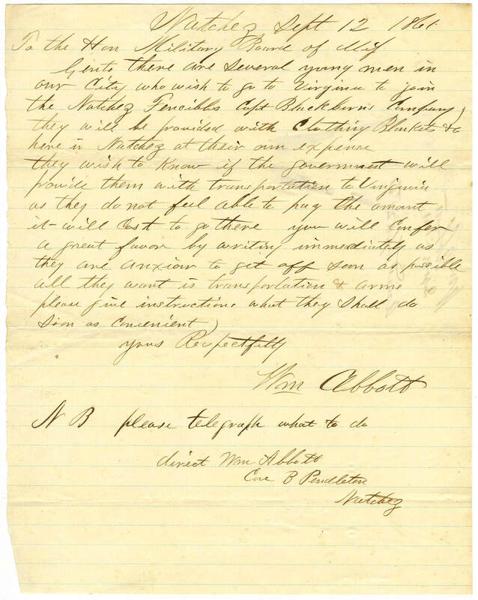 Natchez Sept 12 1861
To the Hon Military Board of Miss
Gents there are several young men in
our City who wish to go to Virginia to join
the Natchez Fencibles Capt Blackburns Company
they will be provided with Clothing Blankets &c
here in Natchez at their own expense
they wish to know if the government will
provide them with transportation to Virginia
as they do not feel able to pay the amount
it will cost to go there you will confer
a great favor by writing immediately as
they are anxious to get off soon as possible
all they want is transportation & arms
please give instructions what they shall do
soon as convenient
yours Respectfully
Wm Abbott
N B please telegraph what to do
direct Wm Abbott
Care B Pendleton
Natchez